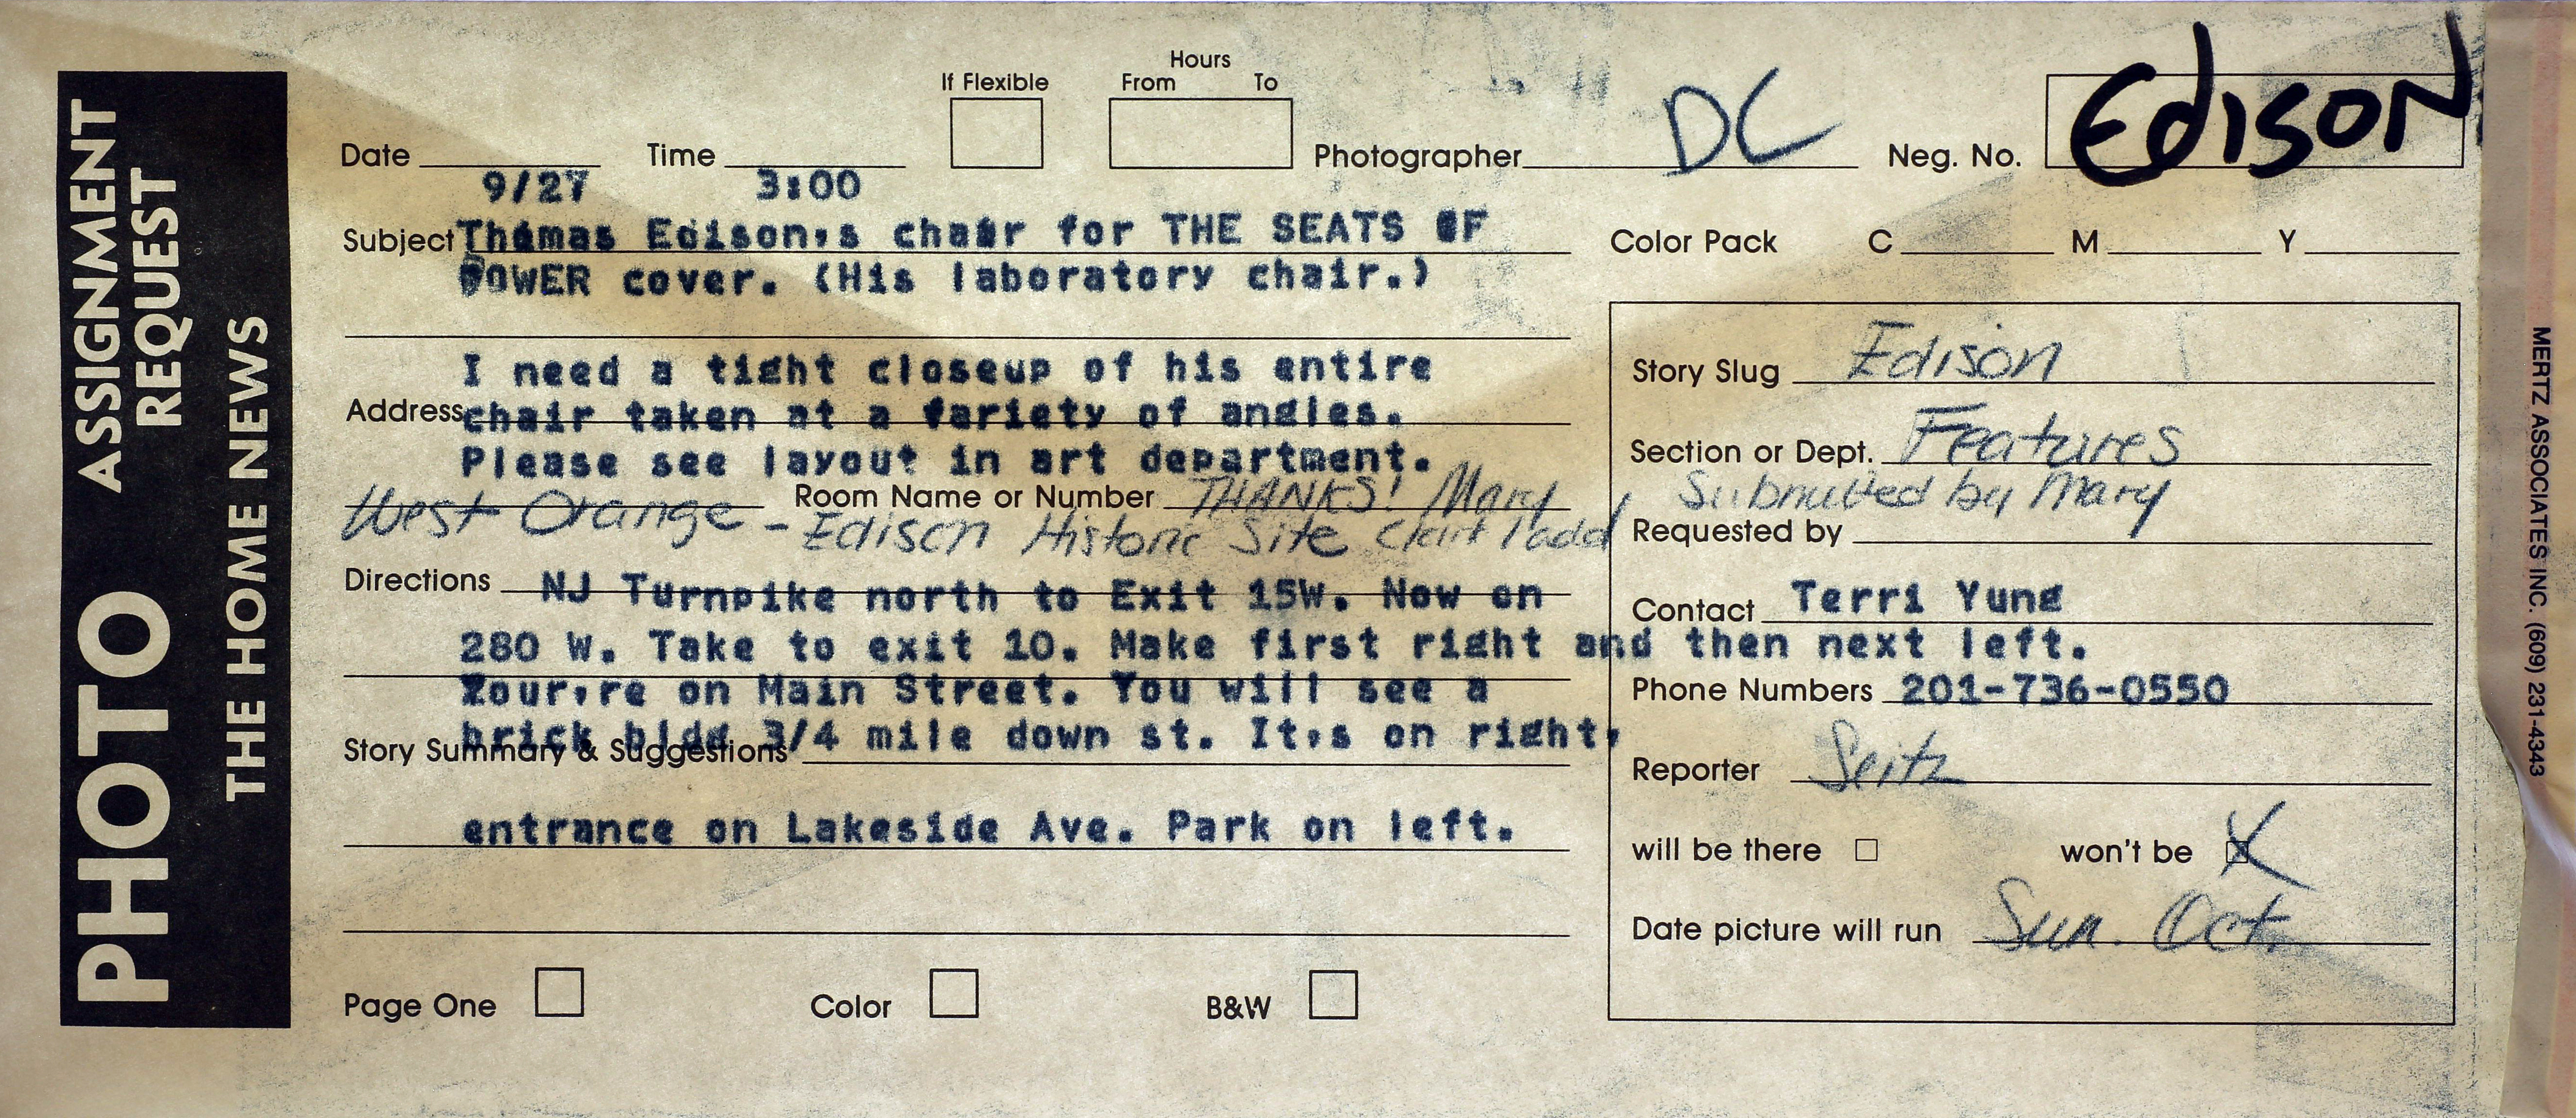 PHOTO ASSIGNMENT REQUEST
THE HOME NEWS
Hours
If Flexible From To
Date 9/27 Time 3:00 Photographer DC Neg. No. Edison
Subject Thomas Edison,s chair for THE SEATS OF
POWER cover. (His laboratory chair.)
Color Pack C M Y
I need a tight closeup of his entire
Address chair taken at a variety of angles.
Please see layout in art department.
Room Name or Number THANKS! Mary
West Orange - Edison Historic Site
Directions NJ Turnpike north to Exit 15W. Now on
280 W. Take to exit 10. Make first right and then next left.
Your,re on Main Street. You will see a
brick bldg 3/4 mile down st. It,s on right,
Story Summary & Suggestions
entrance on Lakeside Ave. Park on left.
Page One Color B&W
Story Slug Edison
Section or Dept. Features
Submitted by Mary
Requested by
Contact Terri Yung
Phone Numbers 201-736-0550
Reporter Seitz
will be there won't be X
Date picture will run Sun. Oct.
MERTZ ASSOCIATES INC. (609) 231-4343